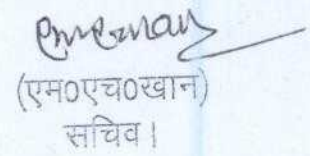 (एम0एच0खान)
सचिव।